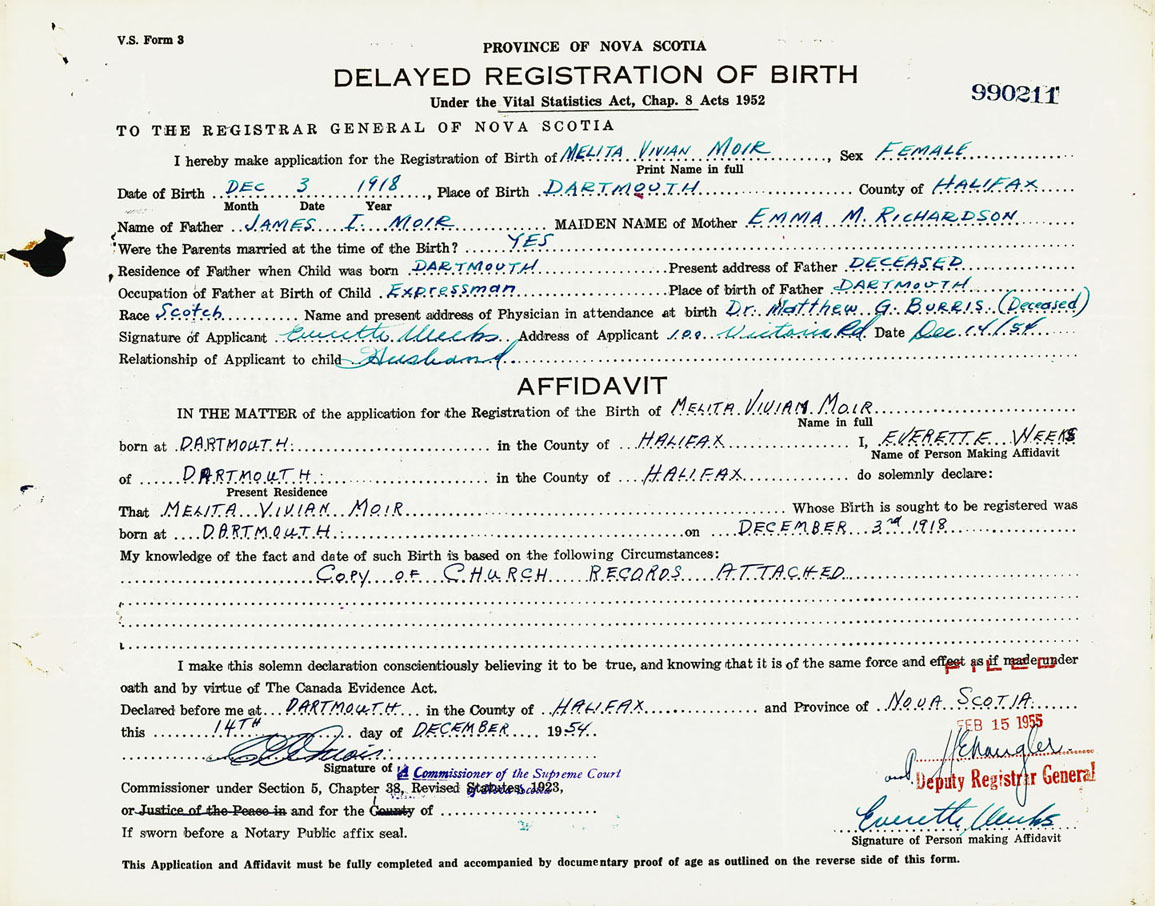 V.S. Form 3
PROVINCE OF NOVA SCOTIA
DELAYED REGISTRATION OF BIRTH
990211
Under the Vital Statistics Act, Chap. 8 Acts 1952
TO THE REGISTRAR GENERAL OF NOVA SCOTIA
I hereby make application for the Registration of Birth of MELITA VIVIAN MOIR, Sex FEMALE
Print Name in full
Date of Birth DEC 3 1918, Place of Birth DARTMOUTH County of HALIFAX
Month Date Year
Name of Father JAMES I. MOIR MAIDEN NAME of Mother EMMA M. RICHARDSON
Were the Parents married at the time of the Birth? YES
Residence of Father when Child was born DARTMOUTH Present address of Father DECEASED
Occupation of Father at Birth of Child Expressman Place of birth of Father DARTMOUTH
Race Scotch Name and present address of Physician in attendance at birth Dr. Matthew G. BURRIS (Deceased)
Signature of Applicant Everette Weeks Address of Applicant 100 Victoria Rd. Date Dec 14/54
Relationship of Applicant to child Husband
AFFIDAVIT
IN THE MATTER of the application for the Registration of the Birth of MELITA VIVIAN MOIR
Name in full
born at DARTMOUTH in the County of HALIFAX I, EVERETTE WEEKS
Name of Person Making Affidavit
of DARTMOUTH in the County of HALIFAX do solemnly declare:
Present Residence
That MELITA VIVIAN MOIR Whose Birth is sought to be registered was
born at DARTMOUTH on DECEMBER 3rd 1918
My knowledge of the fact and date of such Birth is based on the following Circumstances:
COPY OF CHURCH RECORDS ATTACHED
I make this solemn declaration conscientiously believing it to be true, and knowing that it is of the same force and effect as if made under
FILED
oath and by virtue of The Canada Evidence Act.
Declared before me at DARTMOUTH in the County of HALIFAX and Province of NOVA SCOTIA
this 14TH day of DECEMBER 1954
FEB 15 1955
Signature of A Commissioner of the Supreme Court
of Nova Scotia
Deputy Registrar General
Commissioner under Section 5, Chapter 38, Revised Statutes, 1923,
or Justice of the Peace in and for the County of
Everette Weeks
If sworn before a Notary Public affix seal.
Signature of Person making Affidavit
This Application and Affidavit must be fully completed and accompanied by documentary proof of age as outlined on the reverse side of this form.